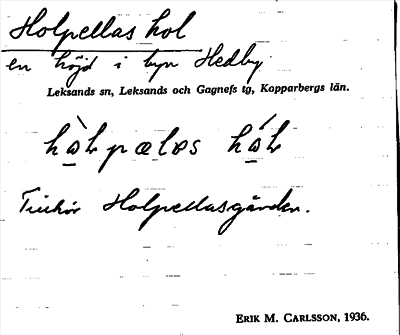 Holpellas hol
en höjd i byn Hedby.
Leksands sn, Leksands och Gagnefs tg, Kopparbergs län.
hàl pælas hál
Tillhör Holpellasgården.
ERIK M. CARLSSON, 1936.